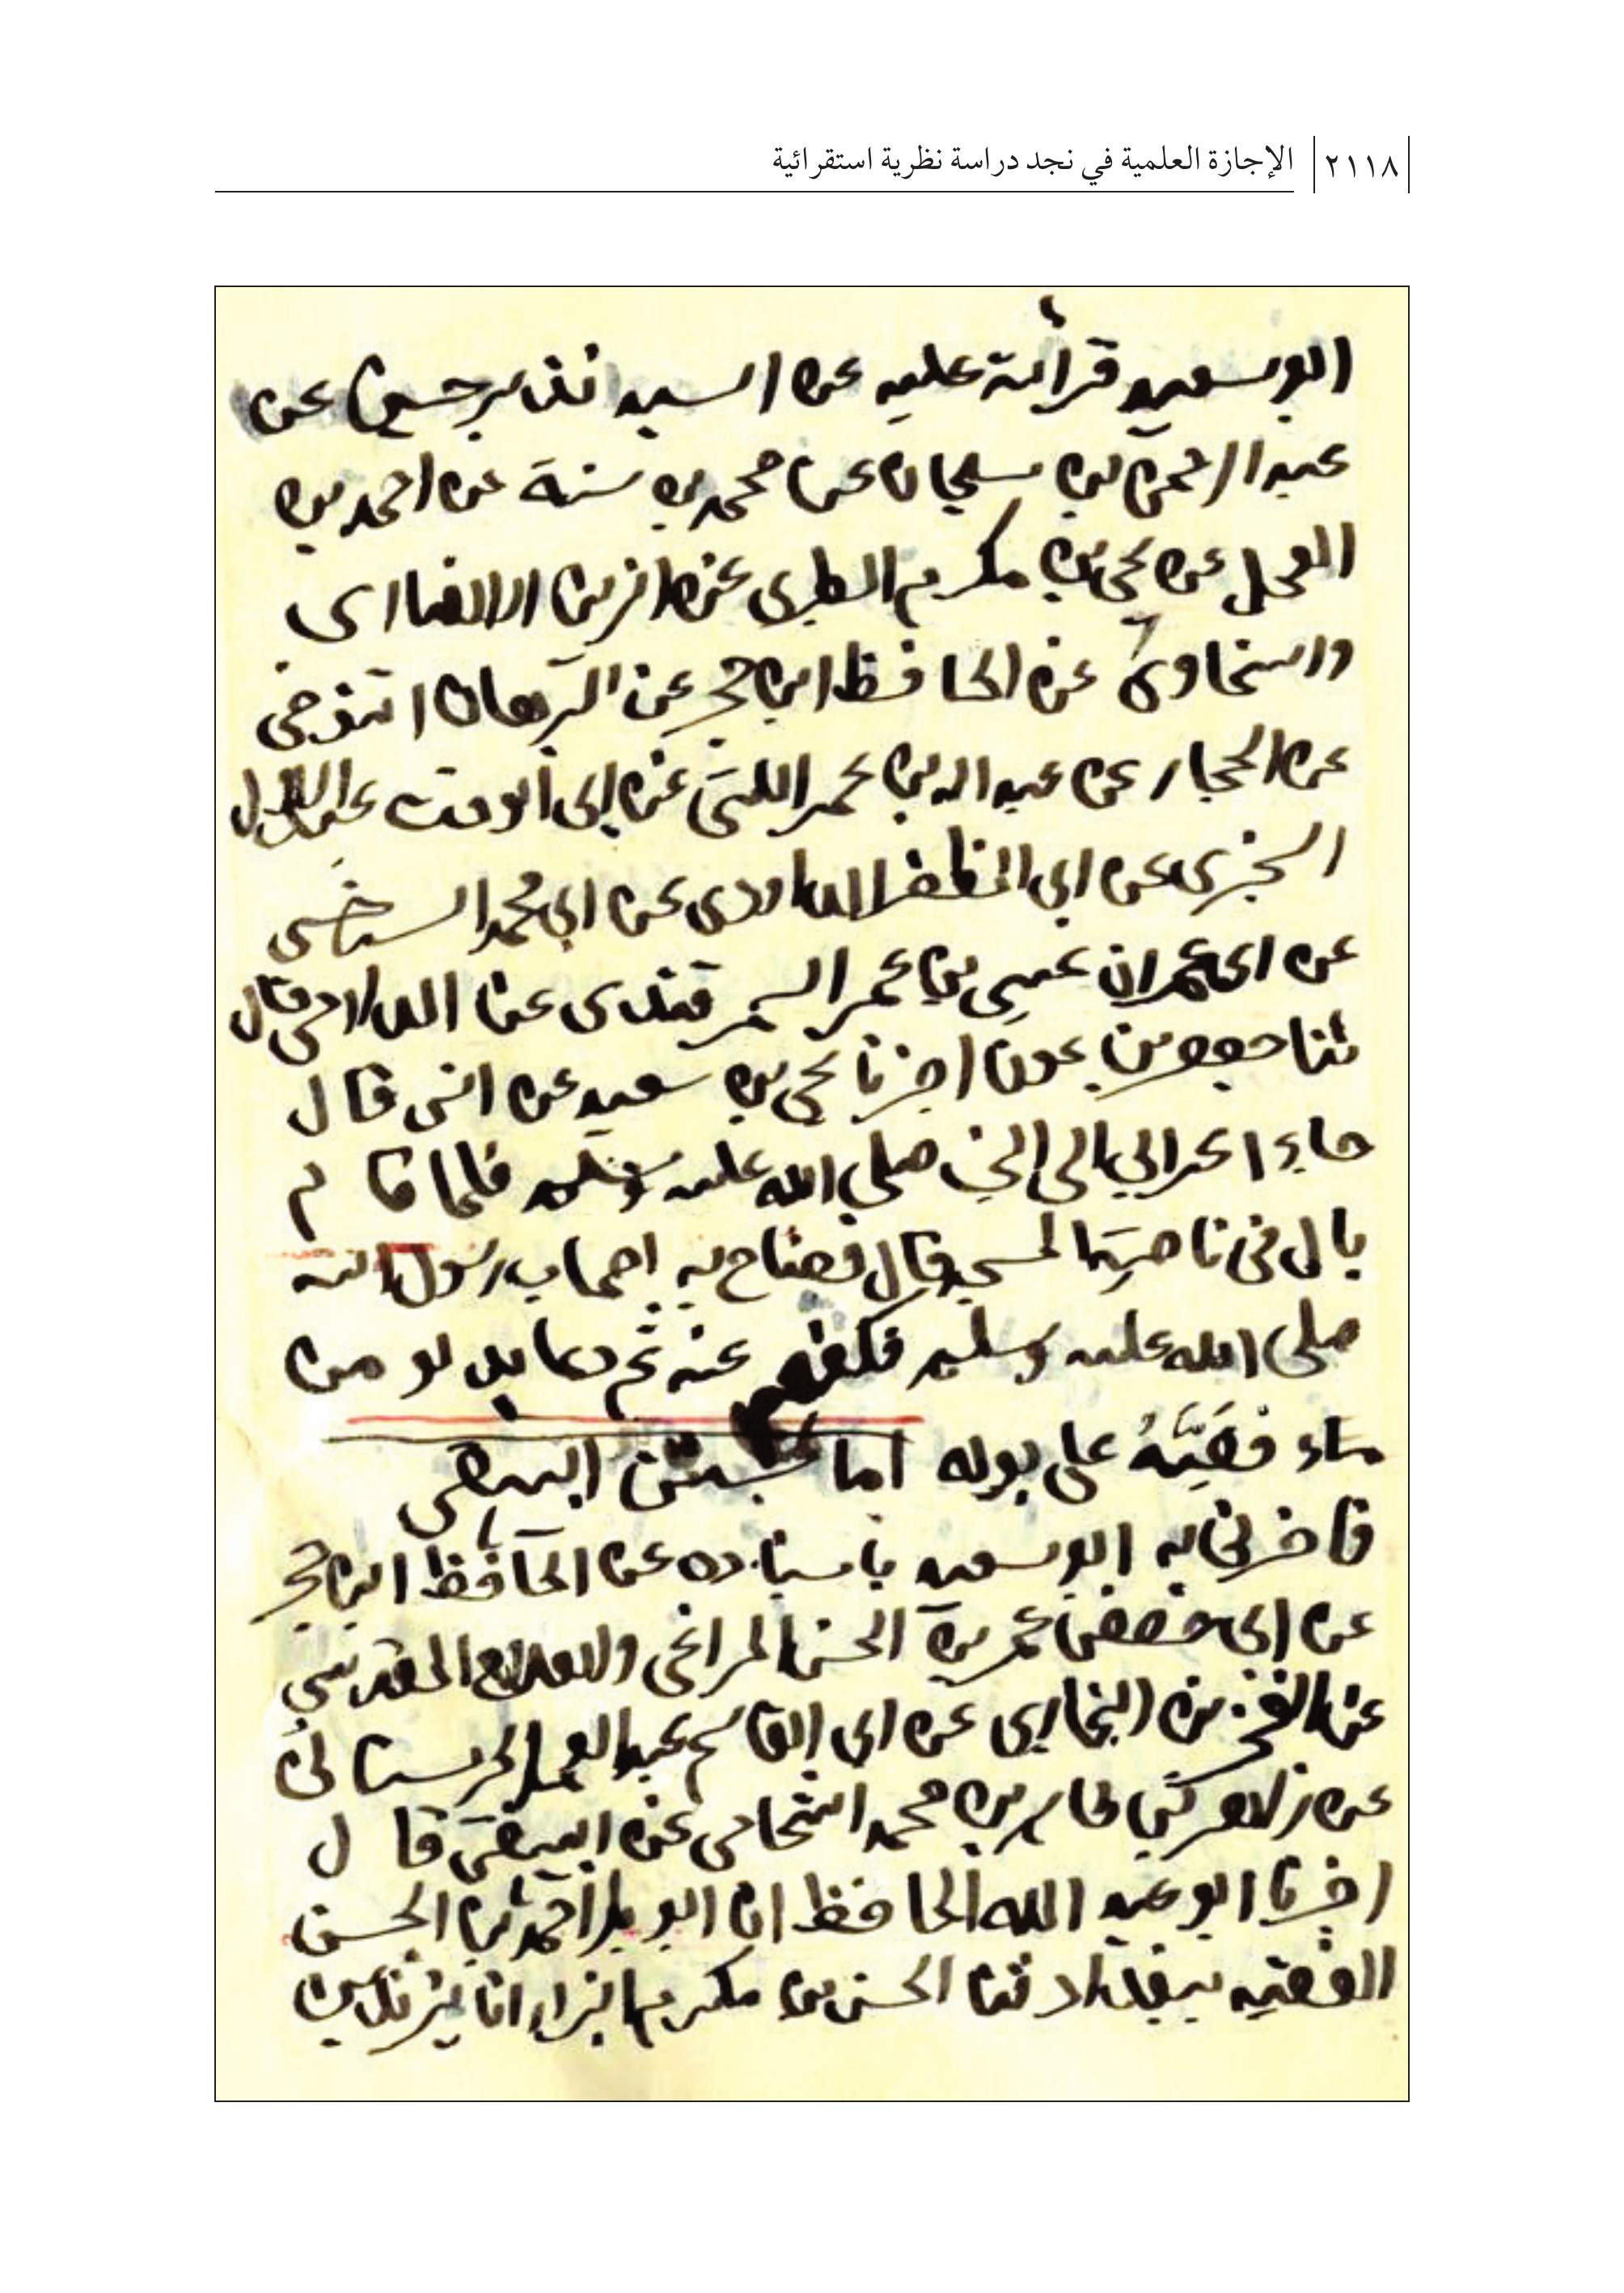 ٢١١٨ الإجازة العلمية في نجد دراسة نظرية استقرائية
ابو سعيد قرأة عليه عن السيد نذير حسين عن
عبد الرحمن بن سليمان عن محمد بن سنة عن احمد بن
العجل عن يحي بن مكرم الطبري عن الزين الانصاري
والسخاوي عن الحافظ ابن حجر عن البرهان التنوخي
عن الحجار عن عبد الله بن عمر اللتي عن ابي الوقت عبد الاول
السجزي عن ابي المظفر الداودي عن ابي محمد السرخسي
عن ابي عمران عيسى بن عمر السمرقندي عن الدارمي قال
ثنا جعفر بن عون اخبرنا يحي بن سعيد عن انس قال
جاء اعرابي الى النبي صلى الله عليه وسلم فلما قام
بال في ناحية المسجد قال فصاح به اصحاب رسول الله
صلى الله عليه وسلم فكفهم عنه ثم دعا بدلو من
ماء فصبه على بوله اما سنن البيهقي
فاخبرني به ابو سعيد باسناده عن الحافظ ابن حجر
عن ابي حفص عمر بن الحسن المراغي والصلاح المقدسي
عن الفخر بن البخاري عن ابي القاسم عبد الصمد الحرستاني
عن زاهر بن طاهر بن محمد الشحامي عن البيهقي قال
اخبرنا ابو عبد الله الحافظ انا ابو بكر احمد بن الحسن
الفقيه ببغداد ثنا الحسن بن مكرم البزار انا يزيد بن